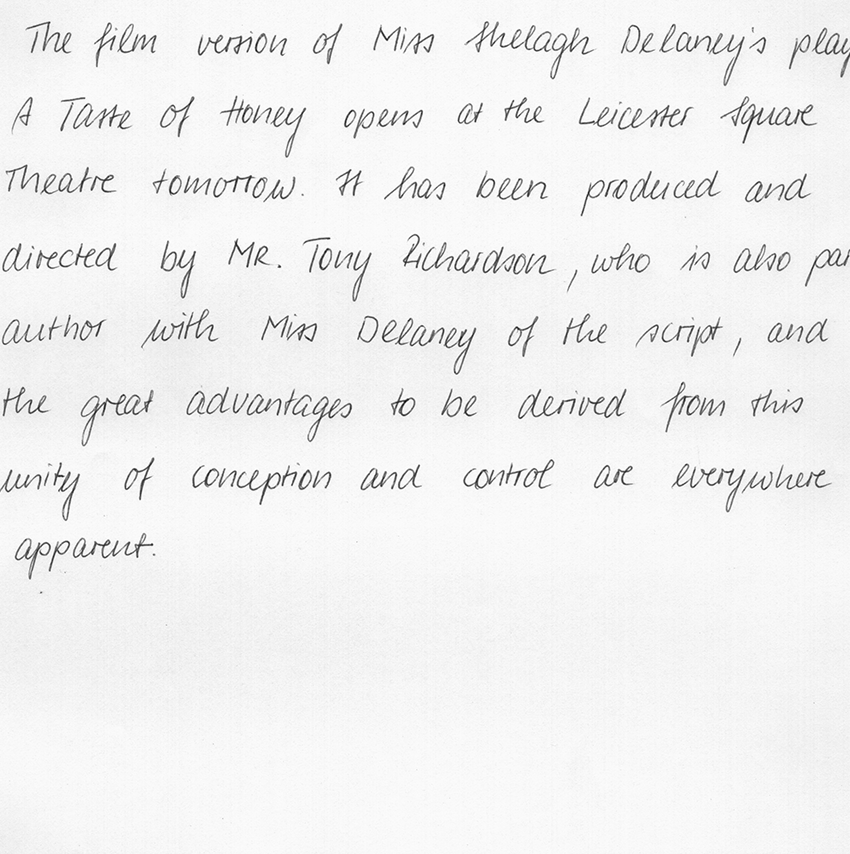 The film version of Miss Shelagh Delaney's play
A Taste of Honey opens at the Leicester Square
Theatre tomorrow. It has been produced and
directed by MR. Tony Richardson, who is also par
author with Miss Delaney of the script, and
the great advantages to be derived from this
unity of conception and control are everywhere
apparent.